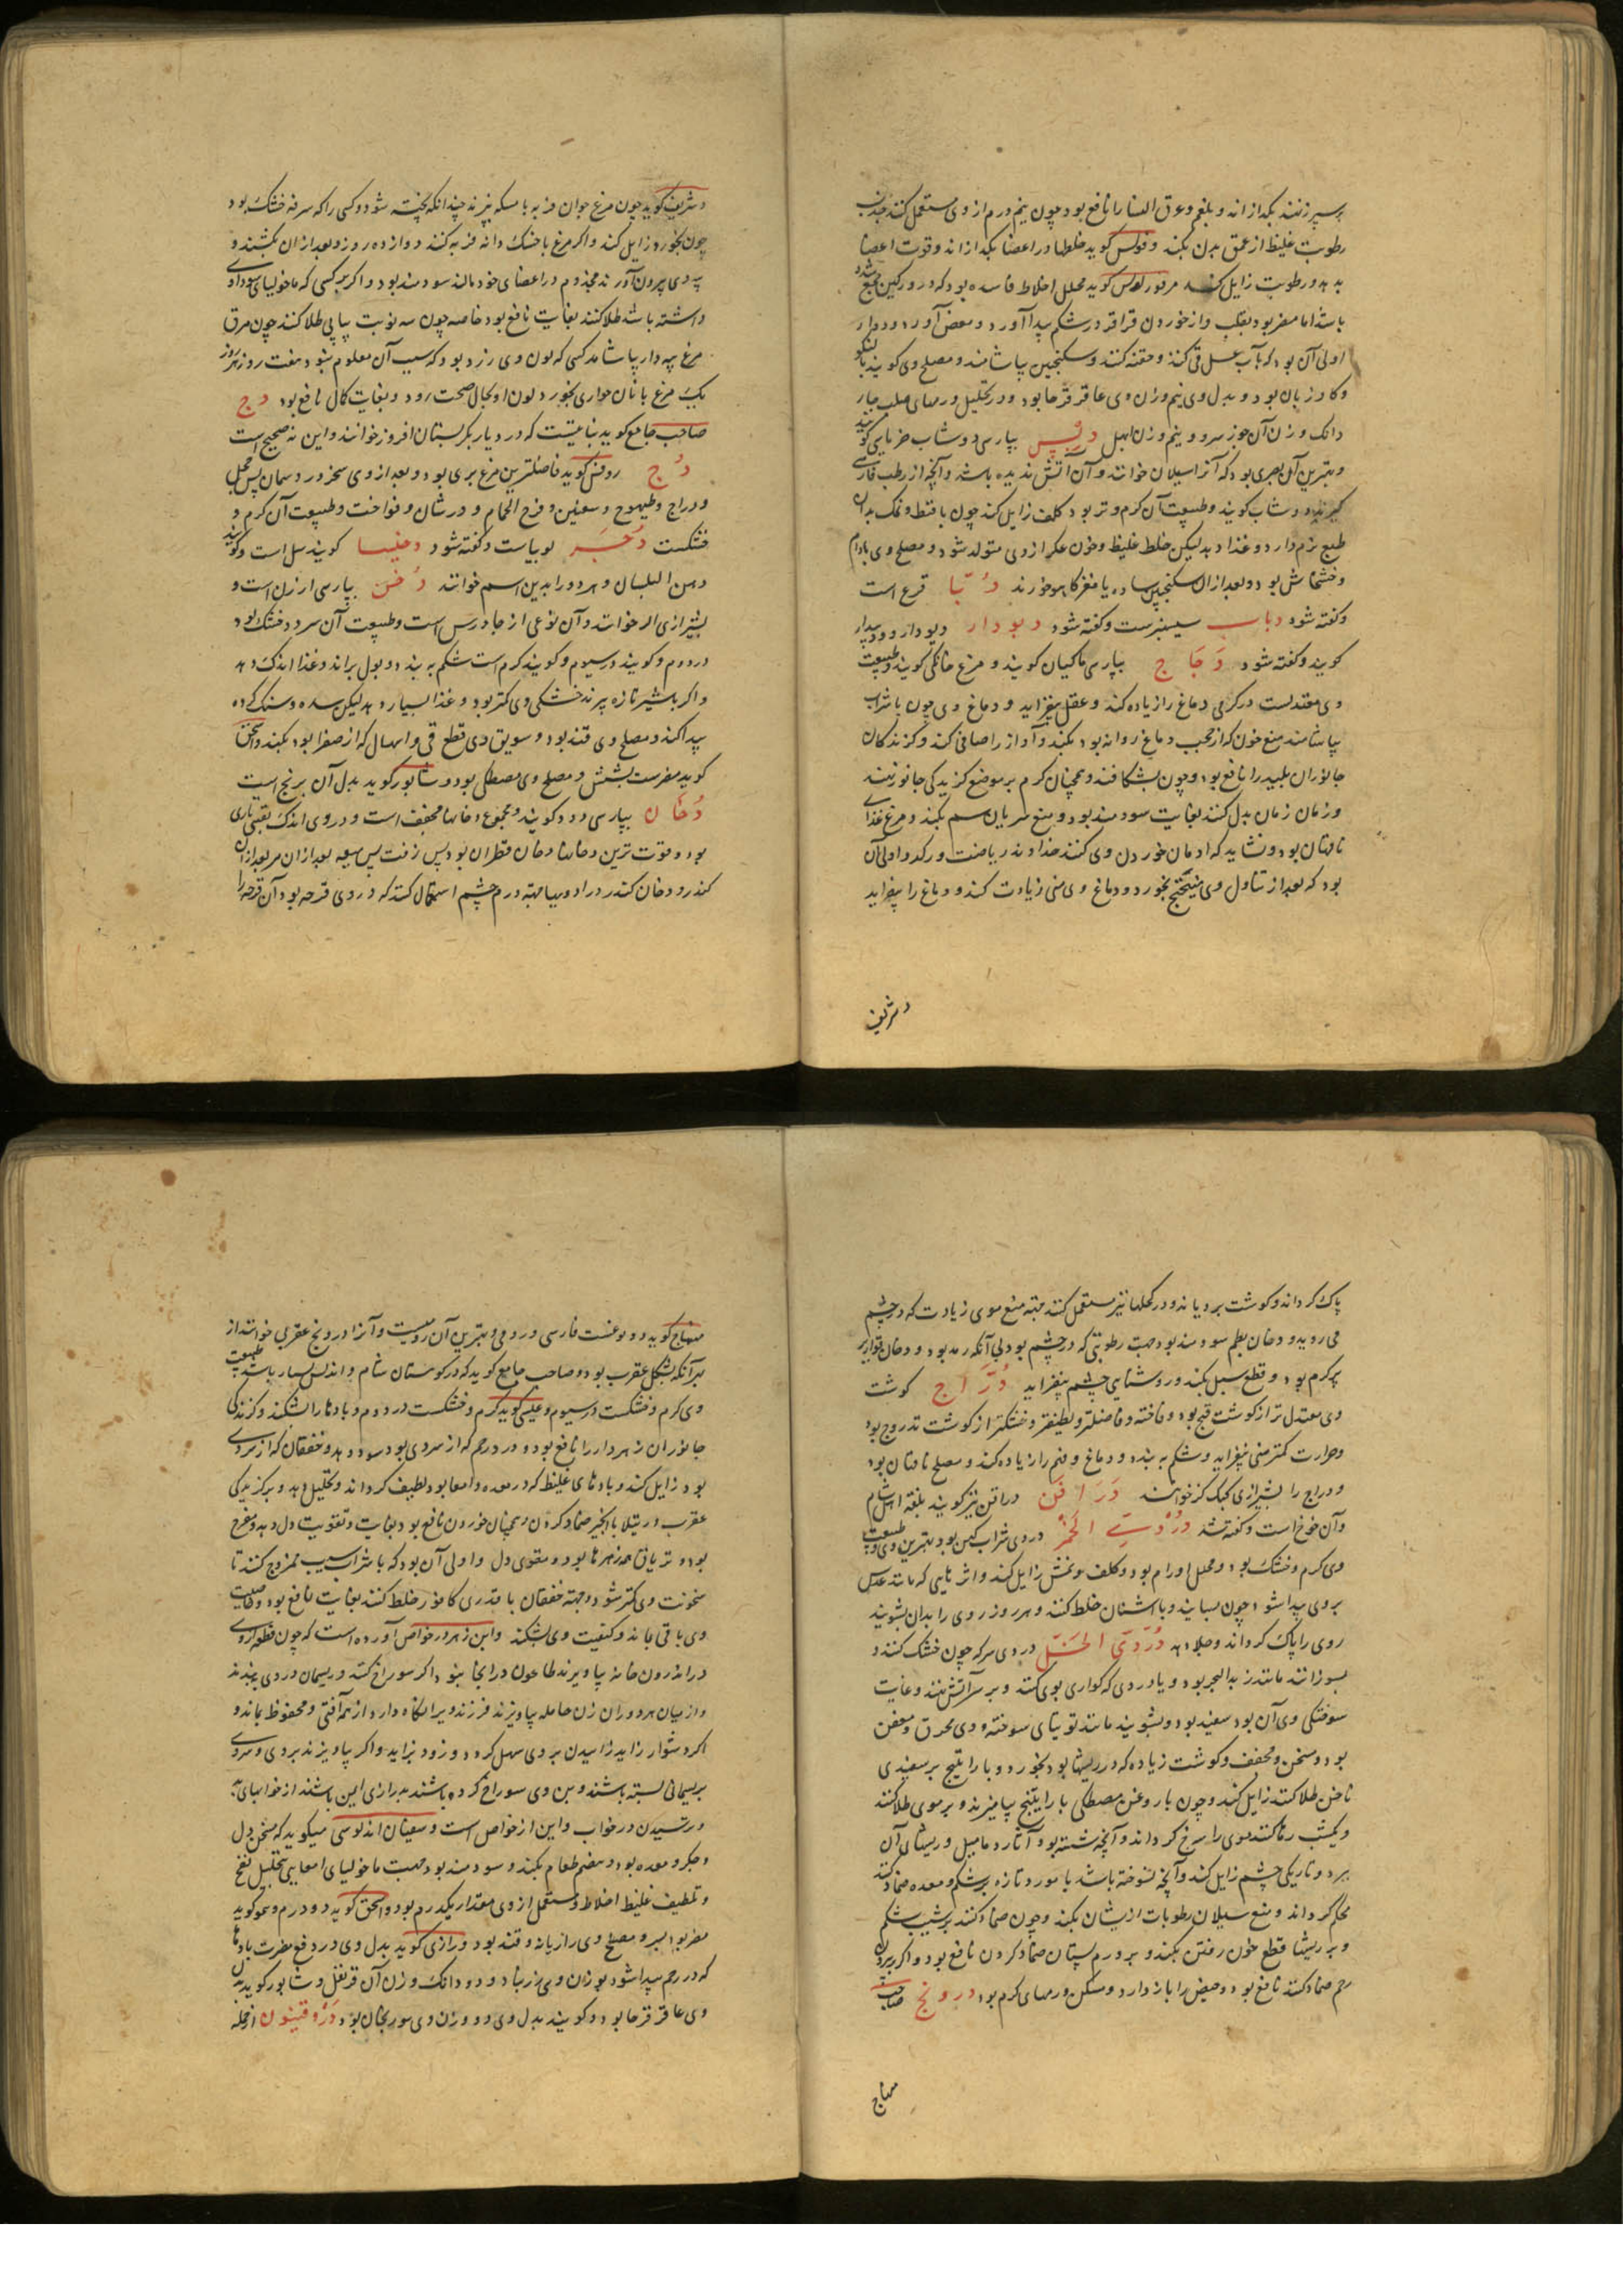 سپرز نهند بگدازاند و بلغم و عرق النسا را نافع بود و چون نیم درم از وی مستعمل کنند جذب
رطوبت غلیظ از عمق بدن بکند و فولس کوید خلطها در اعضا بگدازاند و قوت اعضا
بدهد و رطوبت زایل کند کوید محلل اخلاط فاسده بود که در ورکین مجتمع شده
باشد اما مضر بود بقلب و از خوردن قراقر در شکم پیدا آورد و مغص آورد و دوار
اولی آن بود که بآب عسل قی کنند و حقنه کنند و سکنجبین بیاشامند و مصلح وی کویند
و کاوزبان بود و بدل وی نیم وزن وی عاقرقرحا بود و در تحلیل ورمهای صلب چهار
دانک وزن آن جوز سرو و نیم وزن ابهل دبس بپارسی دوشاب خرمایی کویند
و بهترین آن بصری بود که آنرا سیلان خوانند و آن آتش ندیده باشد و آنچه از رطب فارسی
کیرند دوشاب کویند و طبیعت آن کرم و تر بود کلف زایل کند چون با قسط و نمک بدان
طبع نرم دارد و غذا دهد لیکن خلط غلیظ و خون عکر از وی متولد شود و مصلح وی بادام
و خشخاش بود و بعد از آن سکنجبین ساده یا مغز کاهو خورند دبا قرع است
و کفته شود دباب سیسنبرست و کفته شود دبودار دیودار و
کویند و کفته شود دجاج بپارسی ماکیان کویند و مرغ خانکی کویند و طبیعت
وی معتدلست در کرمی دماغ را زیاده کند و عقل بیفزاید و دماغ وی چون با شراب
بیاشامند منع خون که از حجب دماغ روانه بود بکند و آواز را صافی کند و کزندکان
جانوران پلید را نافع بود و چون بشکافند و همچنان کرم بر موضع کزیدکی جانور نهند
و زمان زمان بدل کنند بغایت سودمند بود و منع سریان سم بکند و مرغ غذای
ناقهان بود و نشاید که ادمان خوردن وی کنند خداوند ریاضت و کد و اولی آن
بود که بعد از تناول وی میبختج بخورد و دماغ وی منی زیادت کند و دماغ را بیفزاید
و شریف
و شریف کوید چون مرغ جوان فربه با مسکه بپزند چندانکه پخته شود و کسی را که سرفه خشک بود
چون بخورد زایل کند و اکر مرغ با خسک دانه فربه کنند دوازده روز و بعد از آن بکشند و
پیه وی بیرون آورند مجذوم در اعضای خود مالد سودمند بود و اکر بر کسی که ماخولیای سوداوی
داشته باشد طلا کنند بغایت نافع بود خاصه چون سه نوبت پیاپی طلا کنند چون مرق
مرغ پیه دار بیاشامد کسی که لون وی زرد بود که سبب آن معلوم نبود هفت روز هر روز
یک مرغ با نان حواری بخورد لون او بحال صحت رود و بغایت کمال نافع بود دج
صاحب جامع کوید نباتیست که در دیار بکر بستان افروز خوانند و این نه صحیح است
دج روفس کوید فاضلترین مرغ بری بود و بعد از وی شحرور و سمان پس حجل
و دراج و طیهوج و شفنین و فرخ الحمام و ورشان و فواخت و طبیعت آن کرم و
خشکست دجر لوبیاست و کفته شود دخیسا کویند سل است و کویند
دهن البلسان و هردو را بدین اسم خوانند دخن بپارسی ارزن است و
بشیرازی الر خوانند و آن نوعی از جاورس است و طبیعت آن سرد و خشک بود
در دوم و کویند در سیوم و کویند کرم است شکم به بندد و بول براند و غذا اندک دهد
و اکر با شیر تازه بپزند خشکی وی کمتر بود و غذا بسیار دهد لیکن سده و سنک کرده
پیدا کند و مصلح وی قند بود و سویق وی قطع قی و اسهال که از صفرا بود بکند و اسحق
کوید مضرست بشش و مصلح وی مصطکی بود و شابور کوید بدل آن برنج است
دخان بپارسی دود کویند و مجموع دخانها مجفف است و در وی اندک بقیه ناری
بود و قوت ترین دخانها دخان قطران بود پس زفت پس میعه بعد از آن مر بعد از آن
کندر و دخان کندر در ادویها جهة ورم چشم استعمال کنند که در وی قرحه بود آن قرحه را
پاک کرداند و کوشت برویاند و در کحلها نیز مستعمل کنند جهة منع موی زیادت که در چشم
می روید و دخان بطم سودمند بود جهت رطوبتی که در چشم بود بی آنکه رمد بود و دخان قواریر
کرم بود و قطع سبل بکند و روشنایی چشم بیفزاید دراج کوشت
وی معتدل تر از کوشت قبج بود و فاخته و فاضلتر و لطیفتر و خشکتر از کوشت تدروج بود
و حرارت کمتر منی بیفزاید و شکم به بندد و دماغ و فهم را زیاده کند و مصلح ناقهان بود
و دراج را بشیرازی کبک کر خوانند دراقن دراقن نیز کویند بلغة اهل شام
و آن خوخ است و کفته شد دردی الخمر دردی شراب کهن بود بهترین وی و طبیعت
وی کرم و خشک بود و محلل اورام بود و کلف و نمش زایل کند و اثر هایی که مانند عدس
بروی پیدا شود چون بسایند و با اشنان خلط کنند و هر روز روی را بدان بشویند
روی را پاک کرداند و جلا دهد دردی الخل دردی سرکه چون خشک کنند و
بسوزانند مانند زبد البحر بود و یا دردی که کواری بوی کنند و بر سر آتش نهند و غایت
سوختکی وی آن بود سفید بود و بشویند مانند توتیای سوخته و وی محرق و معفن
بود و مسخن و مجفف و کوشت زیاده که در ریشها بود بخورد و با راتینج بر سفیدی
ناخن طلا کنند زایل کند و چون با روغن مصطکی با راتینج بیامیزند و بر موی طلا کنند
و یکشب رها کنند موی را سرخ کرداند و آنچه شسته بود آثار دمامیل و ریشهای آن
ببرد و تاریکی چشم زایل کند و آنچه نسوخته باشد با مورد تازه بر شکم و معده ضماد کنند
محکم کرداند و منع سیلان رطوبات ازیشان بکند و چون ضماد کنند بر شیب شکم
و بر ریشها قطع خون رفتن بکند و بر ورم پستان ضماد کردن نافع بود و اکر بر در
رحم ضماد کنند نافع بود و حیض را باز دارد و مسکن ورمهای کرم بود درونج صاحب
منهاج
منهاج کوید دو نوعست فارسی و رومی و بهترین آن رومیست و آنرا درونج عقربی خوانند از
بهر آنکه بشکل عقرب بود و صاحب جامع کوید که در کوهستان شام و اندلس بسیار باشد طبیعت
وی کرم و خشکست در سیوم و عیسی کوید کرم و خشکست در دوم و بادها را بشکند و کزندکی
جانوران زهردار را نافع بود و درد رحم که از سردی بود سود دهد و خفقان که از سردی
بود زایل کند و بادهای غلیظ که در معده و امعا بود لطیف کرداند و تحلیل دهد و بر کزیدکی
عقرب و رتیلا با انجیر ضماد کردن و همچنان خوردن نافع بود بغایت و تقویت دل دهد و مفرح
بود و تریاق همه زهرها بود و مقوی دل و اولی آن بود که با شراب سیب ممزوج کنند تا
سخونت وی کمتر شود و جهة خفقان با قدری کافور خلط کنند بغایت نافع بود و خاصیت
وی باقی بماند و کیفیت وی بشکند و ابن زهر در خواص آورده است که چون قطعه از وی
در اندرون خانه بیاویزند طاعون در آنجا نبود و اکر سوراخ کنند و ریسمان در وی ببندند
و از میان هر دو ران زن حامله بیاویزند فرزند ویرا نکاه دارد از همه آفتی و محفوظ بماند و
اکر دشوار زاید زاییدن بر وی سهل کردد و زود بزاید و اکر بیاویزند بر وی و سر وی
بریسمانی بسته باشند و بن وی سوراخ کرده باشند بدرازی ایمن باشند از خوابهای بد
و ترسیدن در خواب و این از خواص است و سفیان اندلسی میکوید که مسخن دل
و جکر و معده بود و هضم طعام بکند و سودمند بود جهت ماخولیای امعایی بتحلیل نفخ
و تلطیف غلیظ اخلاط و مستعمل از وی مقدار یکدرم بود و اسحق کوید دو درم و کوید
مضر بود بسر و مصلح وی رازیانه و قند بود و رازی کوید بدل وی در دفع مضرت بادها
که در رحم پیدا شود بوزن وی زرنباد و دو دانک وزن آن قرنفل و شابور کوید بدل
وی عاقرقرحا بود و کویند بدل وی دو وزن وی سورنجان بود دروقینون